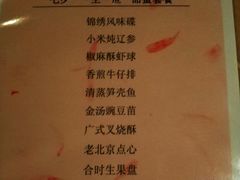 锦绣风味碟
小米炖辽参
椒麻酥虾球
香煎牛仔排
清蒸笋壳鱼
金汤豌豆苗
广式叉烧酥
老北京点心
合时生果盘